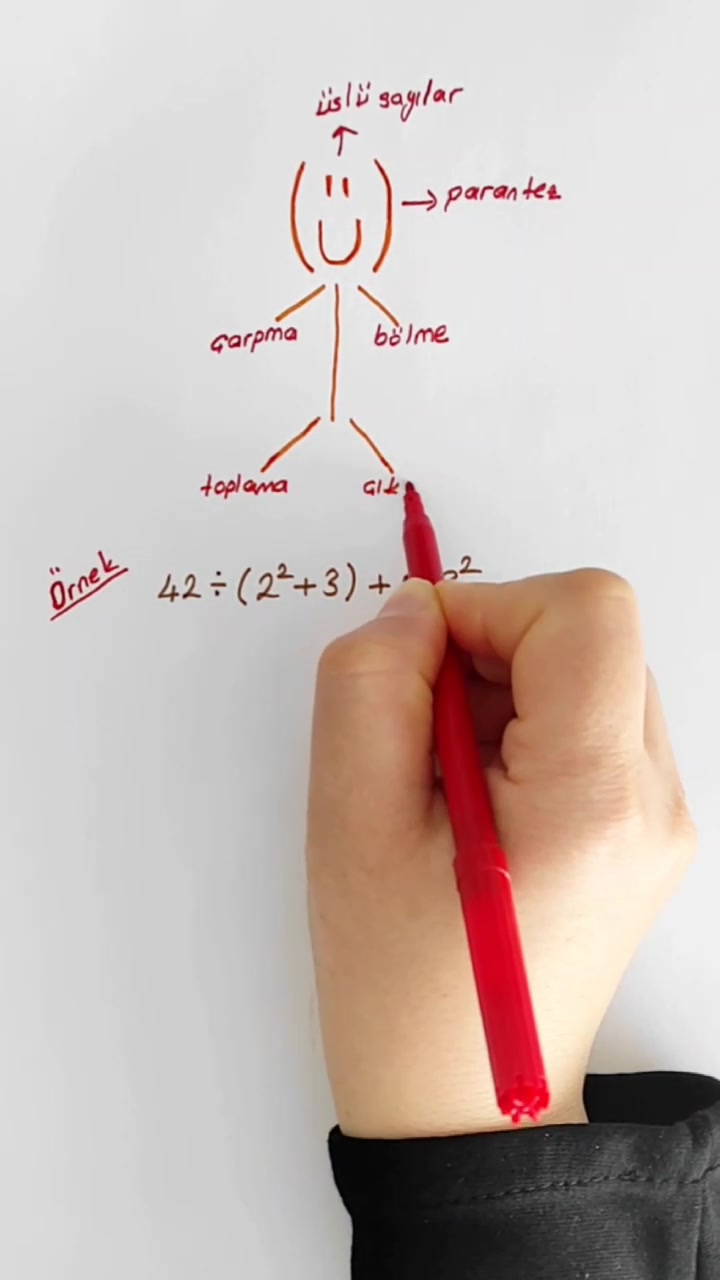 üslü sayılar
parantez
çarpma bölme
toplama
Örnek 42÷(2²+3)+